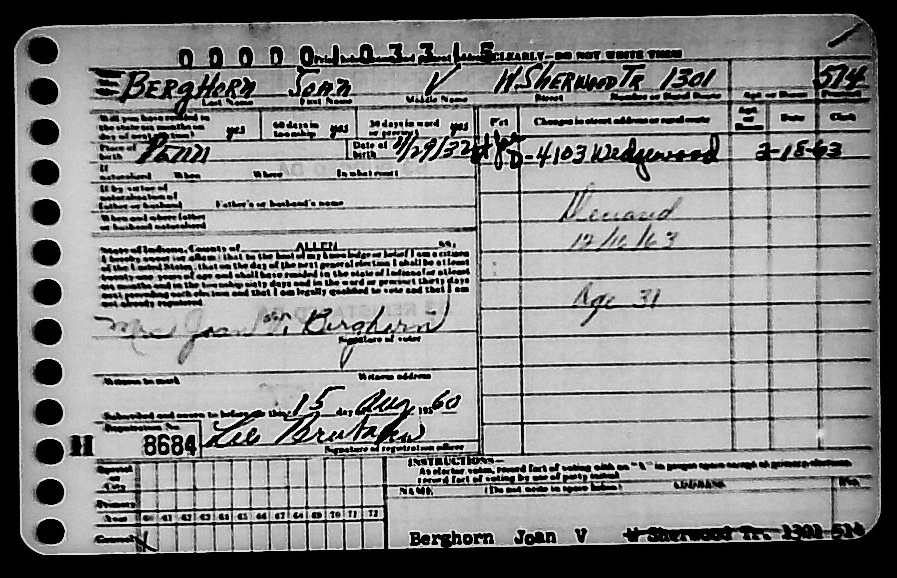 0000103315 CLEARLY - DO NOT WRITE THIS
BERGHORN JOAN V W. SHERWOOD TR. 1301 514
Last Name First Name Middle Name Street Number or Rural Route Apt. or Room Precinct
Will you have resided in the state six months on day of next election? yes 60 days in township yes 30 days in ward or precinct yes Pct Changes in street address or rural route Apt. or Room Date Clerk
Place of birth Penn Date of birth 11/29/32 4103 Wedgewood 2-18-63
If naturalized When Where In what court
If by virtue of naturalization of father or husband Father's or husband's name Deceased
When and where father or husband naturalized 12/16/63
State of Indiana, County of ALLEN ss:
I hereby swear (or affirm) that to the best of my knowledge or belief I am a citizen
of the United States, that on the day of the next general election I shall be at least
twenty-one years of age and shall have resided in the state of Indiana for at least
six months and in the township sixty days and in the ward or precinct thirty days
next preceding such election and that I am legally qualified to vote and that I am
not already registered. Age 31
Mrs Joan V. Berghorn
Signature of voter
Witness to mark Witness address
Subscribed and sworn to before me this 15 day of Aug 1960
Registration No.
H 8684 Lee
Signature of registration officer
INSTRUCTIONS—
As elector votes, record fact of voting with an "X" in proper space except at primary elections.
record fact of voting by use of party initial.
Special or City NAME (Do not write in space below) ADDRESS Pct.
Primary
Year 60 61 62 63 64 65 66 67 68 69 70 71 72
General X
Berghorn Joan V W Sherwood Tr. 1301 514